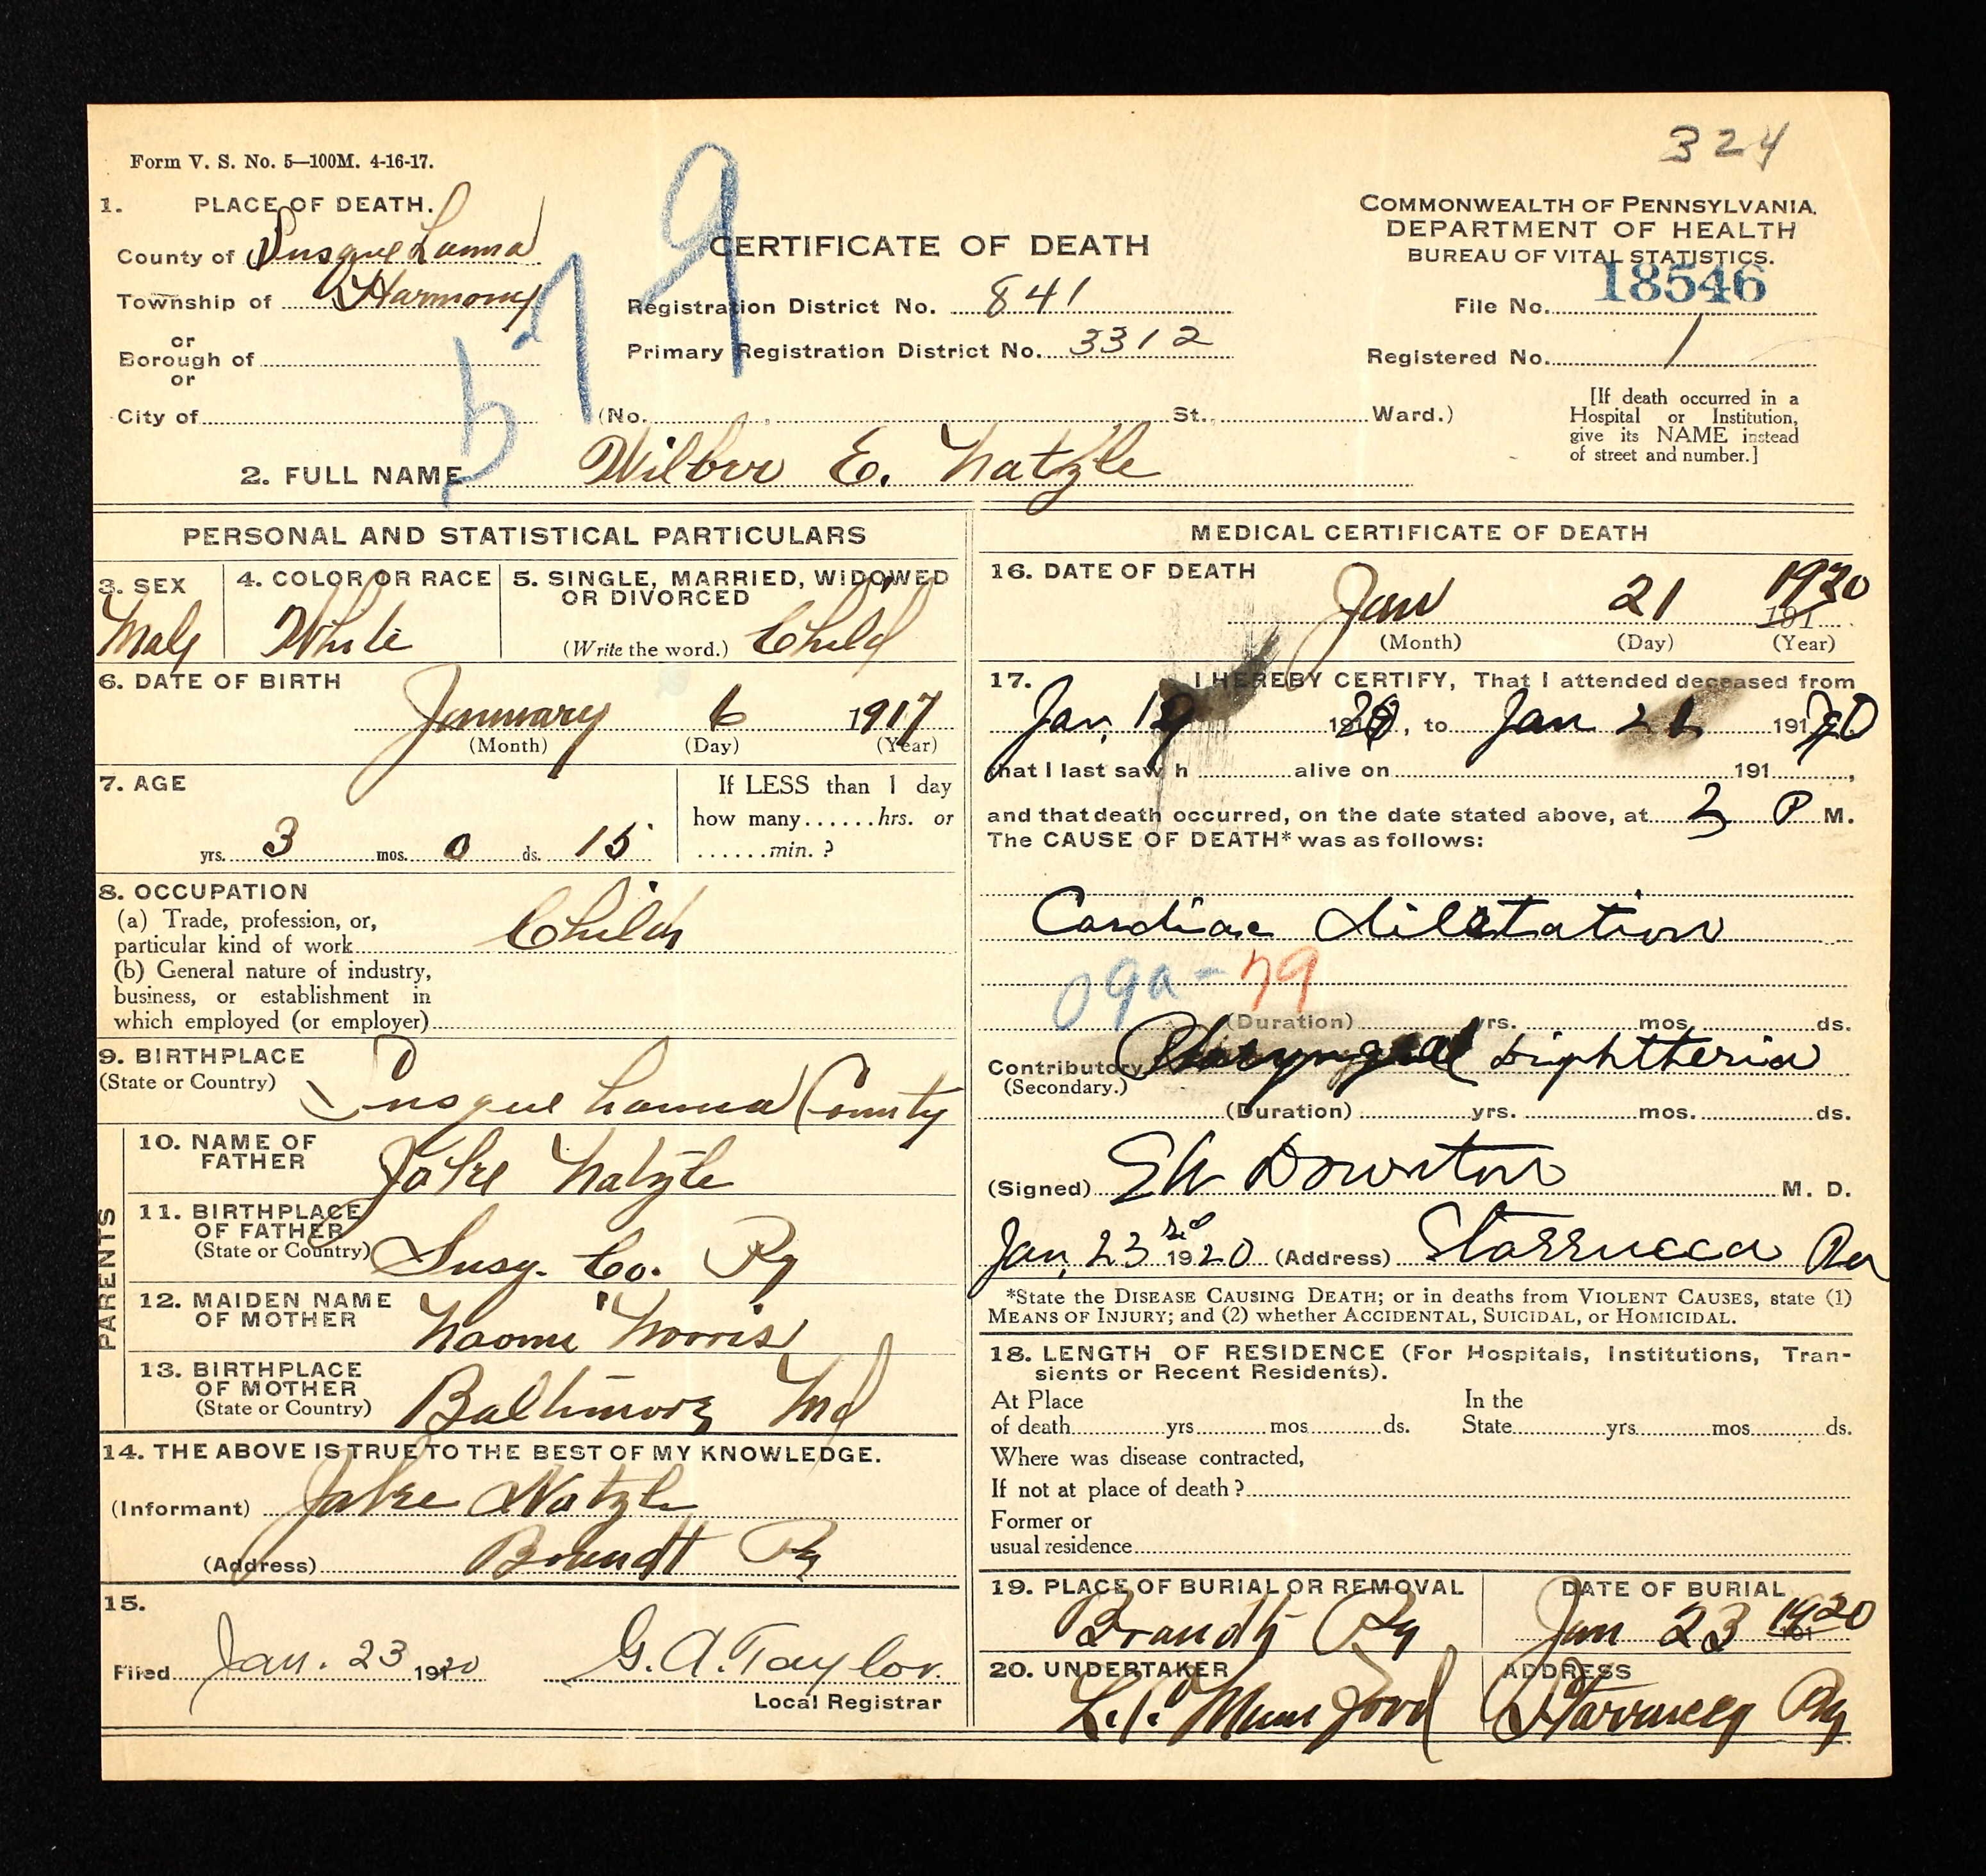 324
Form V. S. No. 5—100M. 4-16-17.
1. PLACE OF DEATH.
County of Susquehanna
Township of Harmony
or
Borough of
or
City of
579
CERTIFICATE OF DEATH
Registration District No. 841
Primary Registration District No. 3312
(No. , St., Ward.)
COMMONWEALTH OF PENNSYLVANIA.
DEPARTMENT OF HEALTH
BUREAU OF VITAL STATISTICS.
File No. 18546
Registered No. 1
[If death occurred in a
Hospital or Institution,
give its NAME instead
of street and number.]
2. FULL NAME Wilbur E. Natzle
PERSONAL AND STATISTICAL PARTICULARS
3. SEX
Male
4. COLOR OR RACE
White
5. SINGLE, MARRIED, WIDOWED
OR DIVORCED
(Write the word.) Child
6. DATE OF BIRTH
January 6 1917
(Month) (Day) (Year)
7. AGE
yrs. 3 mos. 0 ds. 15
If LESS than 1 day
how many......hrs. or
......min. ?
8. OCCUPATION
(a) Trade, profession, or,
particular kind of work Child
(b) General nature of industry,
business, or establishment in
which employed (or employer)
9. BIRTHPLACE
(State or Country)
Susquehanna County
PARENTS
10. NAME OF
FATHER
Jake Natzle
11. BIRTHPLACE
OF FATHER
(State or Country)
Susq. Co. Pa
12. MAIDEN NAME
OF MOTHER
Naomi Norris
13. BIRTHPLACE
OF MOTHER
(State or Country)
Baltimore Md
14. THE ABOVE IS TRUE TO THE BEST OF MY KNOWLEDGE.
(Informant) Jake Natzle
(Address) Brandt Pa
15.
Filed Jan. 23 1920 G. A. Taylor
Local Registrar
MEDICAL CERTIFICATE OF DEATH
16. DATE OF DEATH
Jan 21 1920
191
(Month) (Day) (Year)
17. I HEREBY CERTIFY, That I attended deceased from
Jan, 19 1920, to Jan 21 191 20
that I last saw h alive on 191 ,
and that death occurred, on the date stated above, at 3 P M.
The CAUSE OF DEATH* was as follows:
Cardiac diletation
09a - 79
(Duration) yrs. mos. ds.
Contributory Pharyngeal Diphtheria
(Secondary.)
(Duration) yrs. mos. ds.
(Signed) EW Downton M. D.
Jan, 23rd 1920 (Address) Starrucca Pa
*State the DISEASE CAUSING DEATH; or in deaths from VIOLENT CAUSES, state (1)
MEANS OF INJURY; and (2) whether ACCIDENTAL, SUICIDAL, or HOMICIDAL.
18. LENGTH OF RESIDENCE (For Hospitals, Institutions, Tran-
sients or Recent Residents).
At Place In the
of death yrs. mos ds. State yrs. mos ds.
Where was disease contracted,
If not at place of death ?
Former or
usual residence
19. PLACE OF BURIAL OR REMOVAL
Brandt Pa
DATE OF BURIAL
Jan 23 1920
191
20. UNDERTAKER
Mumford
ADDRESS
Starrucca Pa